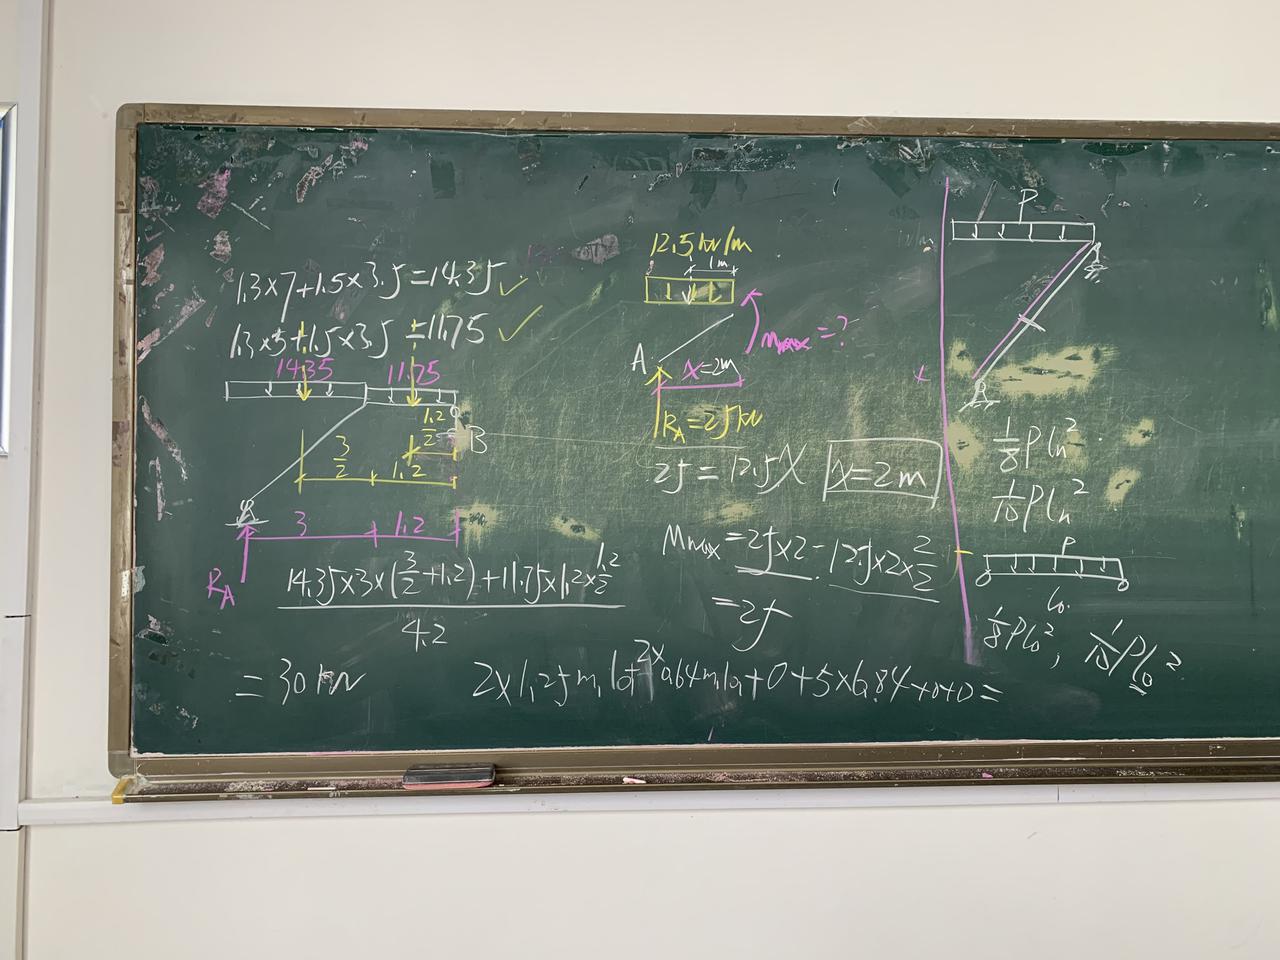 1.3×7+1.5×3.5=14.35 ✓
1.3×5+1.5×3.5=11.75 ✓
14.35 11.75
1.2/2
B
3/2 1.2
3 1.2
R_A
(14.35×3×(3/2+1.2)+11.75×1.2×1.2/2)/4.2
=30kN
12.5kN/m
1m
A
Mmax=?
x=2m
R_A=25kN
25=12.5x x=2m
Mmax=25×2-12.5×2×2/2
=25
+0+5×6.84+0+0=
P
1/8 Pln²
1/10 Pln²
P
l₀
1/8 Pl₀², 1/10 Pl₀²